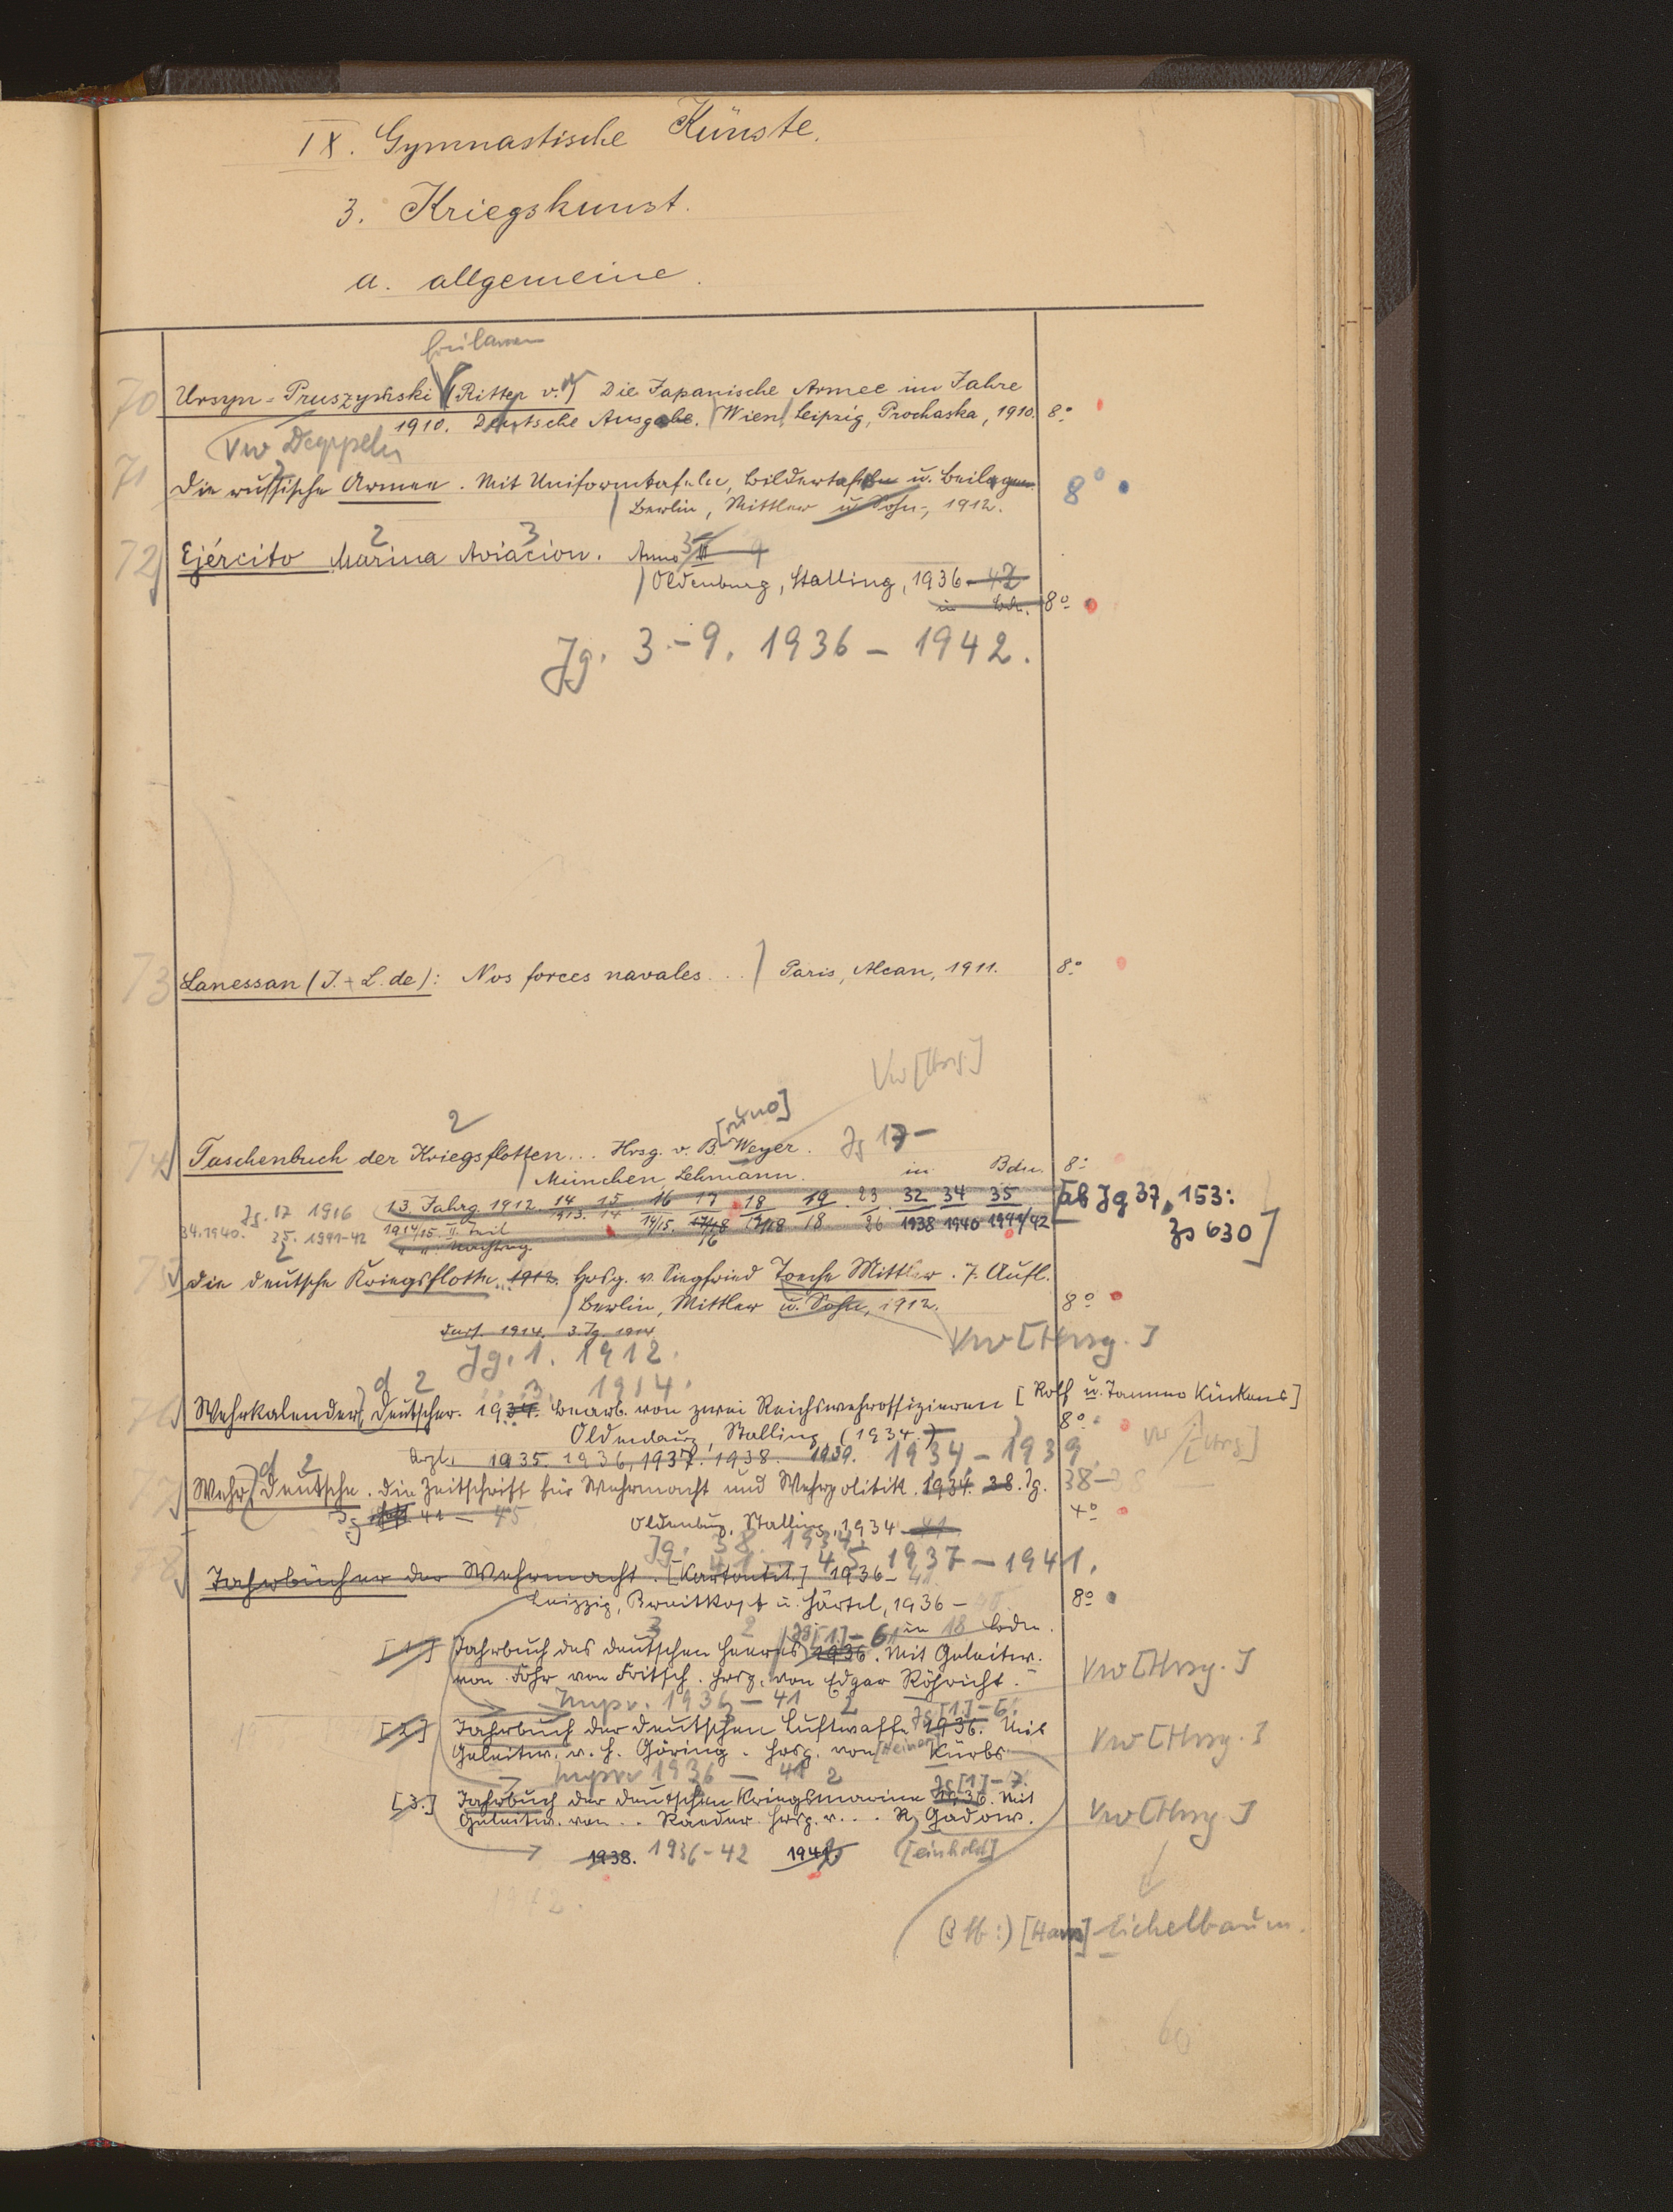 IX. Gymnastische Künste.
3. Kriegskunst.
a. allgemeine.
70 Ursyn-Pruszyński (Ritter v.) Die Japanische Armee im Jahre
1910. Deutsche Ausgabe. Wien, Leipzig, Prochaska, 1910. 8°
Vw Doppeln
71 Die russische Armee. Mit Uniformtafeln, Bildertafeln u. Beilagen.
Berlin, Mittler u. Sohn, 1912. 8°
2 3
72 Ejército Marina Aviacion. Anno III 9
Oldenburg, Stalling, 1936-42
in Bdn. 8°
Jg. 3.-9. 1936 - 1942.
73 Lanessan (J.-L. de): Nos forces navales... Paris, Alcan, 1911. 8°
Vw [Hrsg]
2 [runo]
74 Taschenbuch der Kriegsflotten... Hrsg. v. B. Weyer. Jg 17-
München, Lehmann. in Bdn. 8°
13. Jahrg. 1912. 14 15 16 17 18 19. 23 32 34 35 [ab Jg 37, 153:
Jg. 17 1916 1913. 14 14/15. 17/18 18 26 1938 1940 1941/42 Zs 630]
34. 1940. 35. 1941-42 1914/15. II. Teil
" " Nachtrag
75 Die deutsche Kriegsflotte... 1912. Hrsg. v. Siegfried Toeche Mittler. 7. Aufl.
Berlin, Mittler u. Sohn, 1912. 8°
Dass. 1914. 3. Jg. 1914
Vw [Hrsg.]
Jg. 1. 1912.
3. 1914.
d 2
76 Wehrkalender, Deutscher. 1934. Bearb. von zwei Reichswehroffizieren [Rolf u. Tammo Kückens]
Oldenburg, Stalling (1934.) 8°
Vw [Hrsg]
1935. 1936, 1937. 1938. 1939. 1934 - 1939.
d 2
77 Wehr, Deutsche. Die Zeitschrift für Wehrmacht und Wehrpolitik. 1934. 38. Jg. 38-
Jg 41 - 45 Oldenburg, Stalling, 1934 - 41 4°
Jg. 38. 1934.
41 - 45 1937 - 1941.
78 Jahrbücher der Wehrmacht. 1936-41
Leipzig, Breitkopf u. Härtel, 1936 - 8°
in 18 Bden.
3 2 Jg [1.] - 6.
[1.] Jahrbuch des deutschen Heeres 1936. Mit Geleitw.
von Frhr von Fritsch. Hrsg. von Edgar Röhricht. Vw [Hrsg.]
1936 - 41
2 Jg [1.] - 6.
[2.] Jahrbuch der deutschen Luftwaffe 1936. Mit
Geleitw. v. H. Göring. Hrsg. von Kürbs. Vw [Hrsg.]
1936 - 41
2 Jg [1] - 7.
[3.] Jahrbuch der deutschen Kriegsmarine 1936. Mit
Geleitw. von .. Raeder. Hrsg. v. .. R. Gadow. Vw [Hrsg.]
1938. 1936-42 1942. [einhold]
1942.
[Hans] Eichelbaum.
60